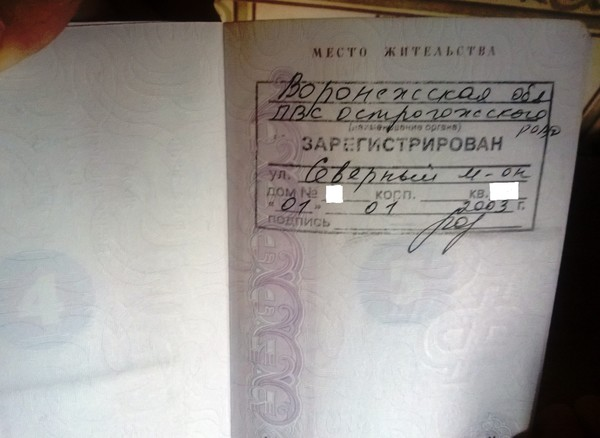 МЕСТО ЖИТЕЛЬСТВА
Воронежская обл
ПВС Острогожского
(наименование органа)
РОВД
ЗАРЕГИСТРИРОВАН
ул. Северный м-он
дом № корп. кв.
"01" 01 2003 г.
подпись